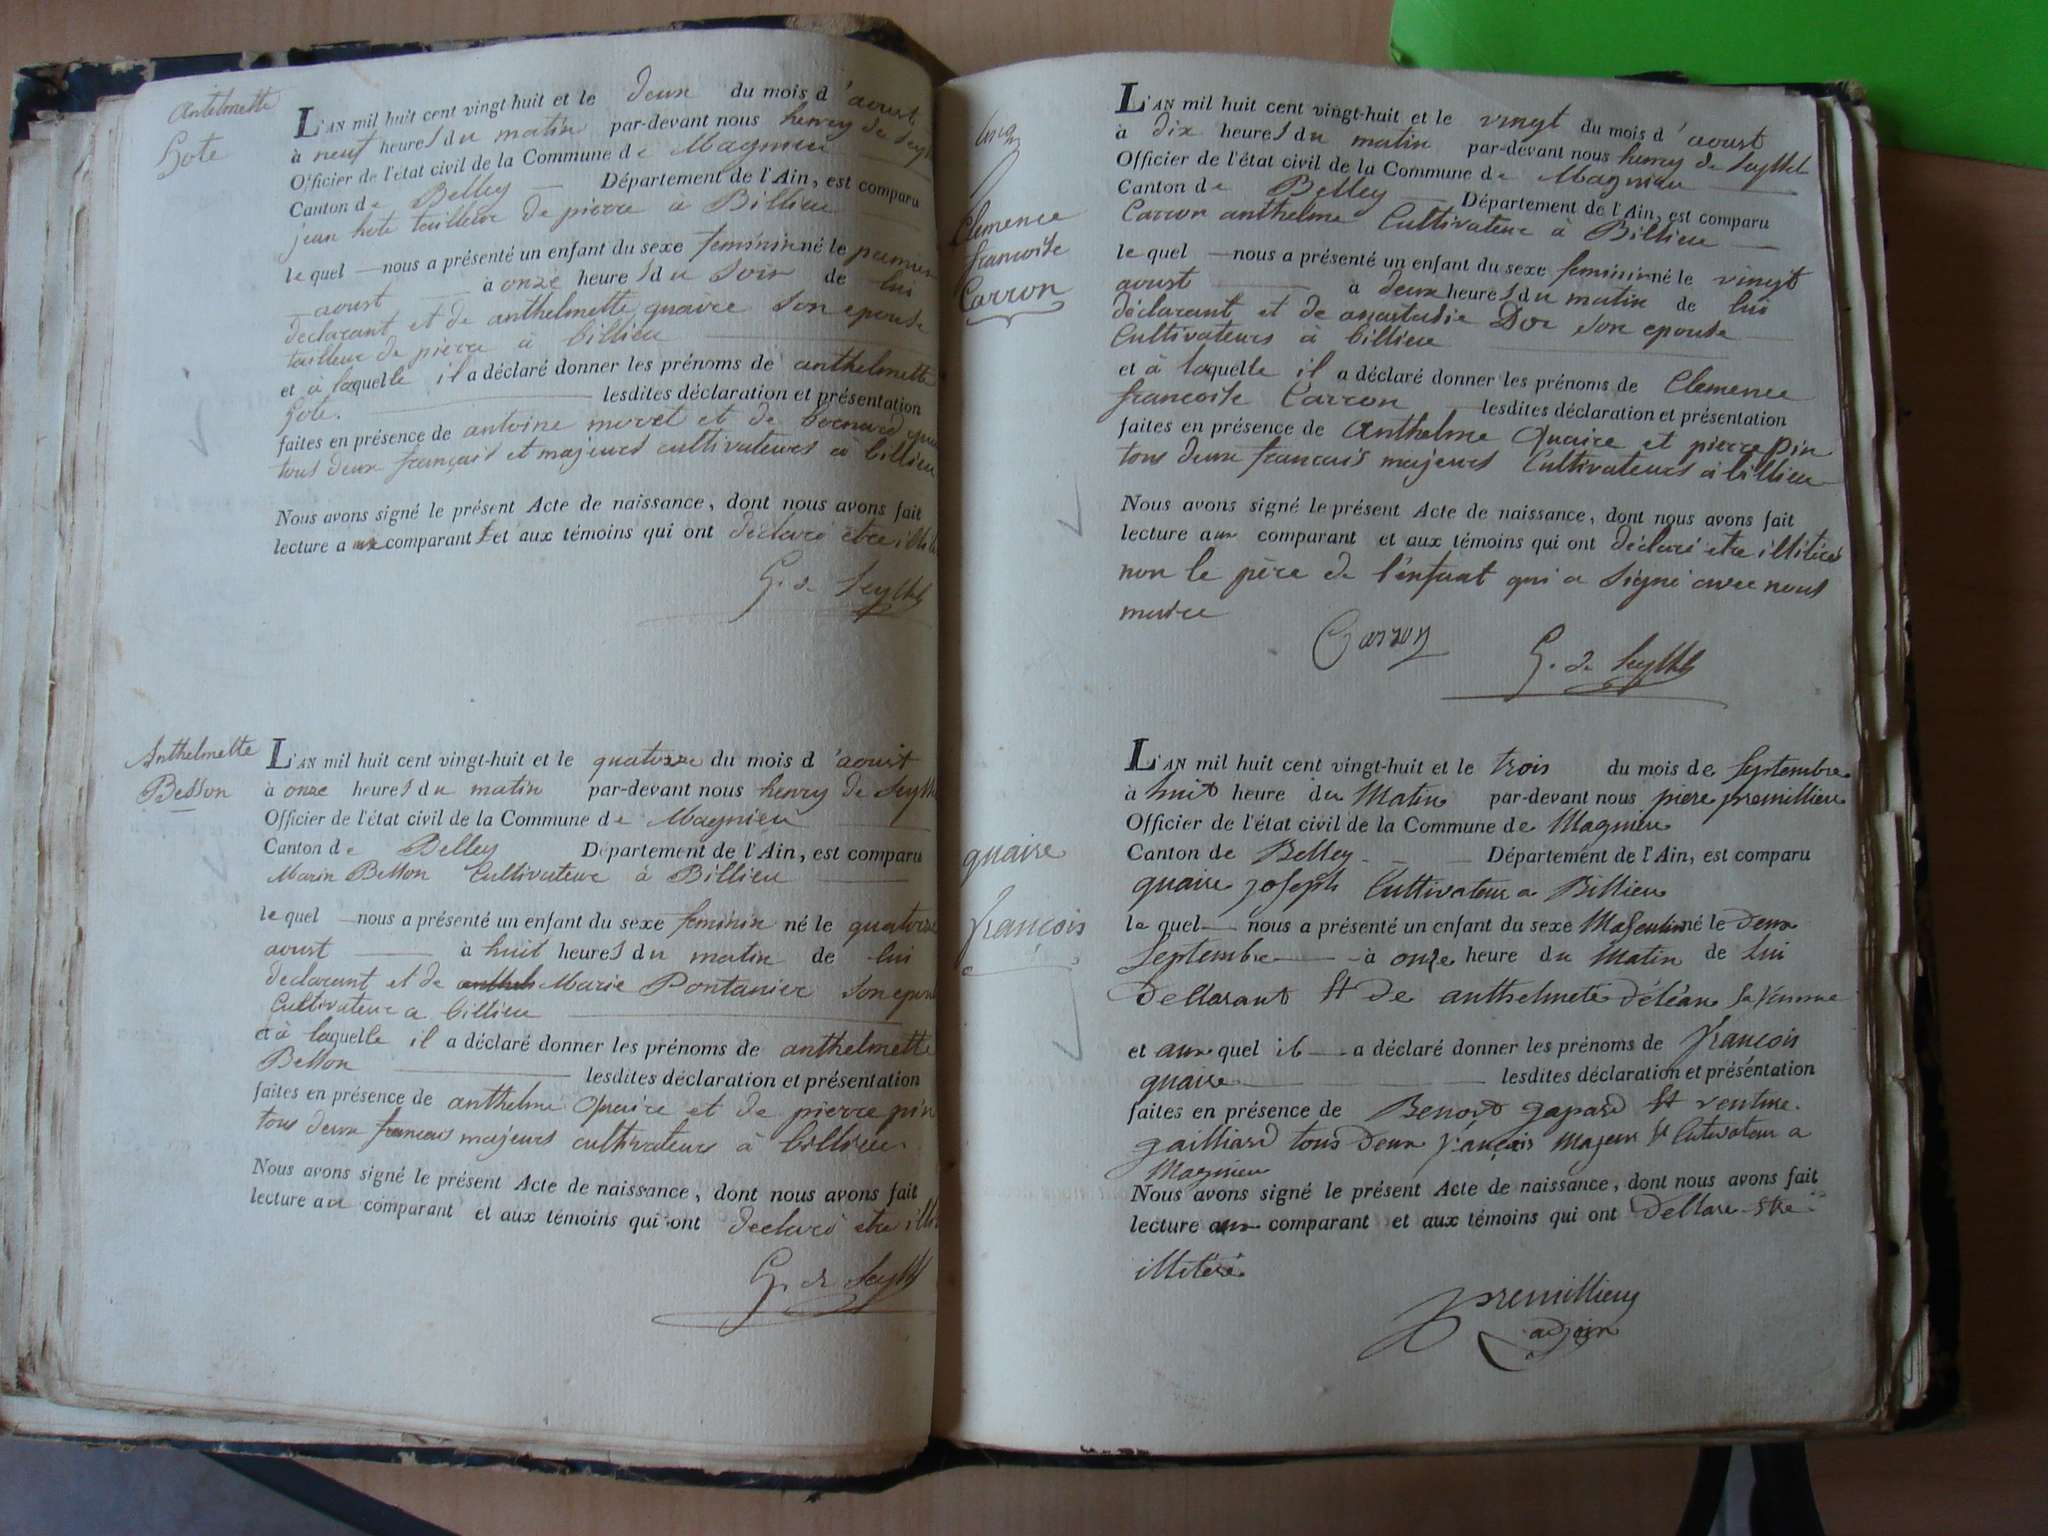 Antelmette
Hote
L'AN mil huit cent vingt-huit et le deux du mois d'aoust
à neuf heures du matin par-devant nous henry de Seyss
Officier de l'état civil de la Commune de Magnieu
Canton de Belley Département de l'Ain, est comparu
jean hote tailleur de pierre a Billieu
le quel nous a présenté un enfant du sexe feminin né le premier
aoust à onze heures du soir de lui
déclarant et de anthelmette quaire son epouse
tailleur de pierre a billieu
et a laquelle il a déclaré donner les prénoms de anthelmette
hote. lesdites déclaration et présentation
faites en présence de antoine moret et de bernard
tous deux français et majeurs cultivateurs a billieu
Nous avons signé le présent Acte de naissance, dont nous avons fait
lecture a comparant et aux témoins qui ont déclaré etre
H. de Seyssel
Anthelmette
Besson
L'AN mil huit cent vingt-huit et le quatorze du mois d'aoust
à onze heures du matin par-devant nous henry de Seyss
Officier de l'état civil de la Commune de Magnieu
Canton de Belley Département de l'Ain, est comparu
Marin Besson Cultivateur à Billieu
le quel nous a présenté un enfant du sexe feminin né le quatorze
aoust à huit heures du matin de lui
declarant et de Marie Pontanier son epouse
Cultivateur a billieu
et à laquelle il a déclaré donner les prénoms de anthelmette
Besson lesdites déclaration et présentation
faites en présence de anthelme Quaire et de pierre pin
tous deux francais majeurs cultivateurs à billieu
Nous avons signé le présent Acte de naissance, dont nous avons fait
lecture au comparant et aux témoins qui ont declaré etre
H. de Seyssel
Clemence
francoise
Carron
L'AN mil huit cent vingt-huit et le vingt du mois d'aoust
à dix heures du matin par-devant nous henry de Seyssel
Officier de l'état civil de la Commune de Magnieu
Canton de Belley Département de l'Ain, est comparu
Carron anthelme Cultivateur à Billieu
le quel nous a présenté un enfant du sexe feminin né le vingt
aoust à deux heures du matin de lui
déclarant et de anastasie Dor son epouse
Cultivateurs à billieu
et à laquelle il a déclaré donner les prénoms de Clemence
francoise Carron lesdites déclaration et présentation
faites en présence de Anthelme Quaire et pierre pin
tous deux francais majeurs Cultivateurs a billieu
Nous avons signé le présent Acte de naissance, dont nous avons fait
lecture aux comparant et aux témoins qui ont déclaré etre illitéré
non le père de l'enfant qui a signé avec nous
maire
Carron
H. de Seyssel
quaire
françois
L'AN mil huit cent vingt-huit et le trois du mois de Septembre
à huit heure du Matin par-devant nous piere premillieu
Officier de l'état civil de la Commune de Magnieu
Canton de Belley Département de l'Ain, est comparu
quaire joseph Cultivateur a Billieu
le quel nous a présenté un enfant du sexe Masculin né le Deux
Septembre à onze heure du Matin de lui
Dellarant et de anthelmete déléan sa femme
et aux quel il a déclaré donner les prénoms de françois
quaire lesdites déclaration et présentation
faites en présence de Benoit gapard et venture
gailliard tous Deux françois Majeur et Cutivateur a
Magnieu
Nous avons signé le présent Acte de naissance, dont nous avons fait
lecture aux comparant et aux témoins qui ont Dellare etre
illiteré
premillieu
adjoin